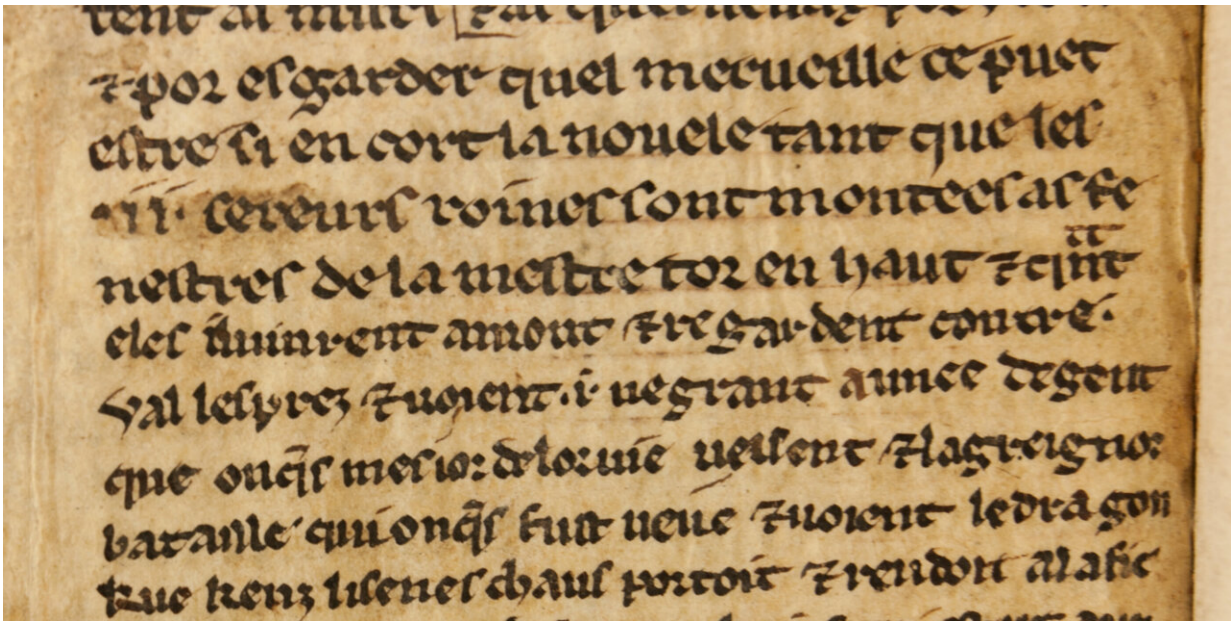 tent al
⁊ por esgarder quel merueille ce puet
estre si en cort la nouele tant que les
.iii. sereurs roines sont montees as fe
nestres de la mestre tor en haut ⁊ qnt
eles i uinrent amont ⁊ regardent contre
val les prez ⁊ uoient .i. ne grant aunee de gent
que onq̄s mes ior de lor uie ueissent ⁊ la greignor
bataille qui onq̄s fust ueue ⁊ uoient le dragon
Kue Kenz li senes chaus portoit ⁊ rendoit